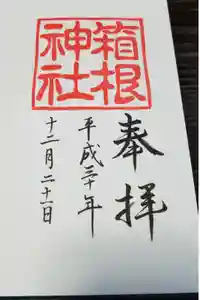 奉拝
箱根
神社
平成三十年
十二月二十一日